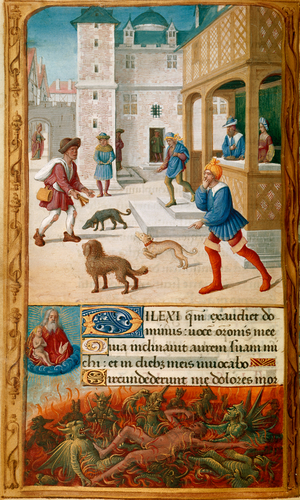 DILEXI qui exaudiet do
minus: uoce orõnis mee
Quia inclinauit aurem suam mi
chi: et in dieb3 meis inuocabo
Circundederunt me dolores mor